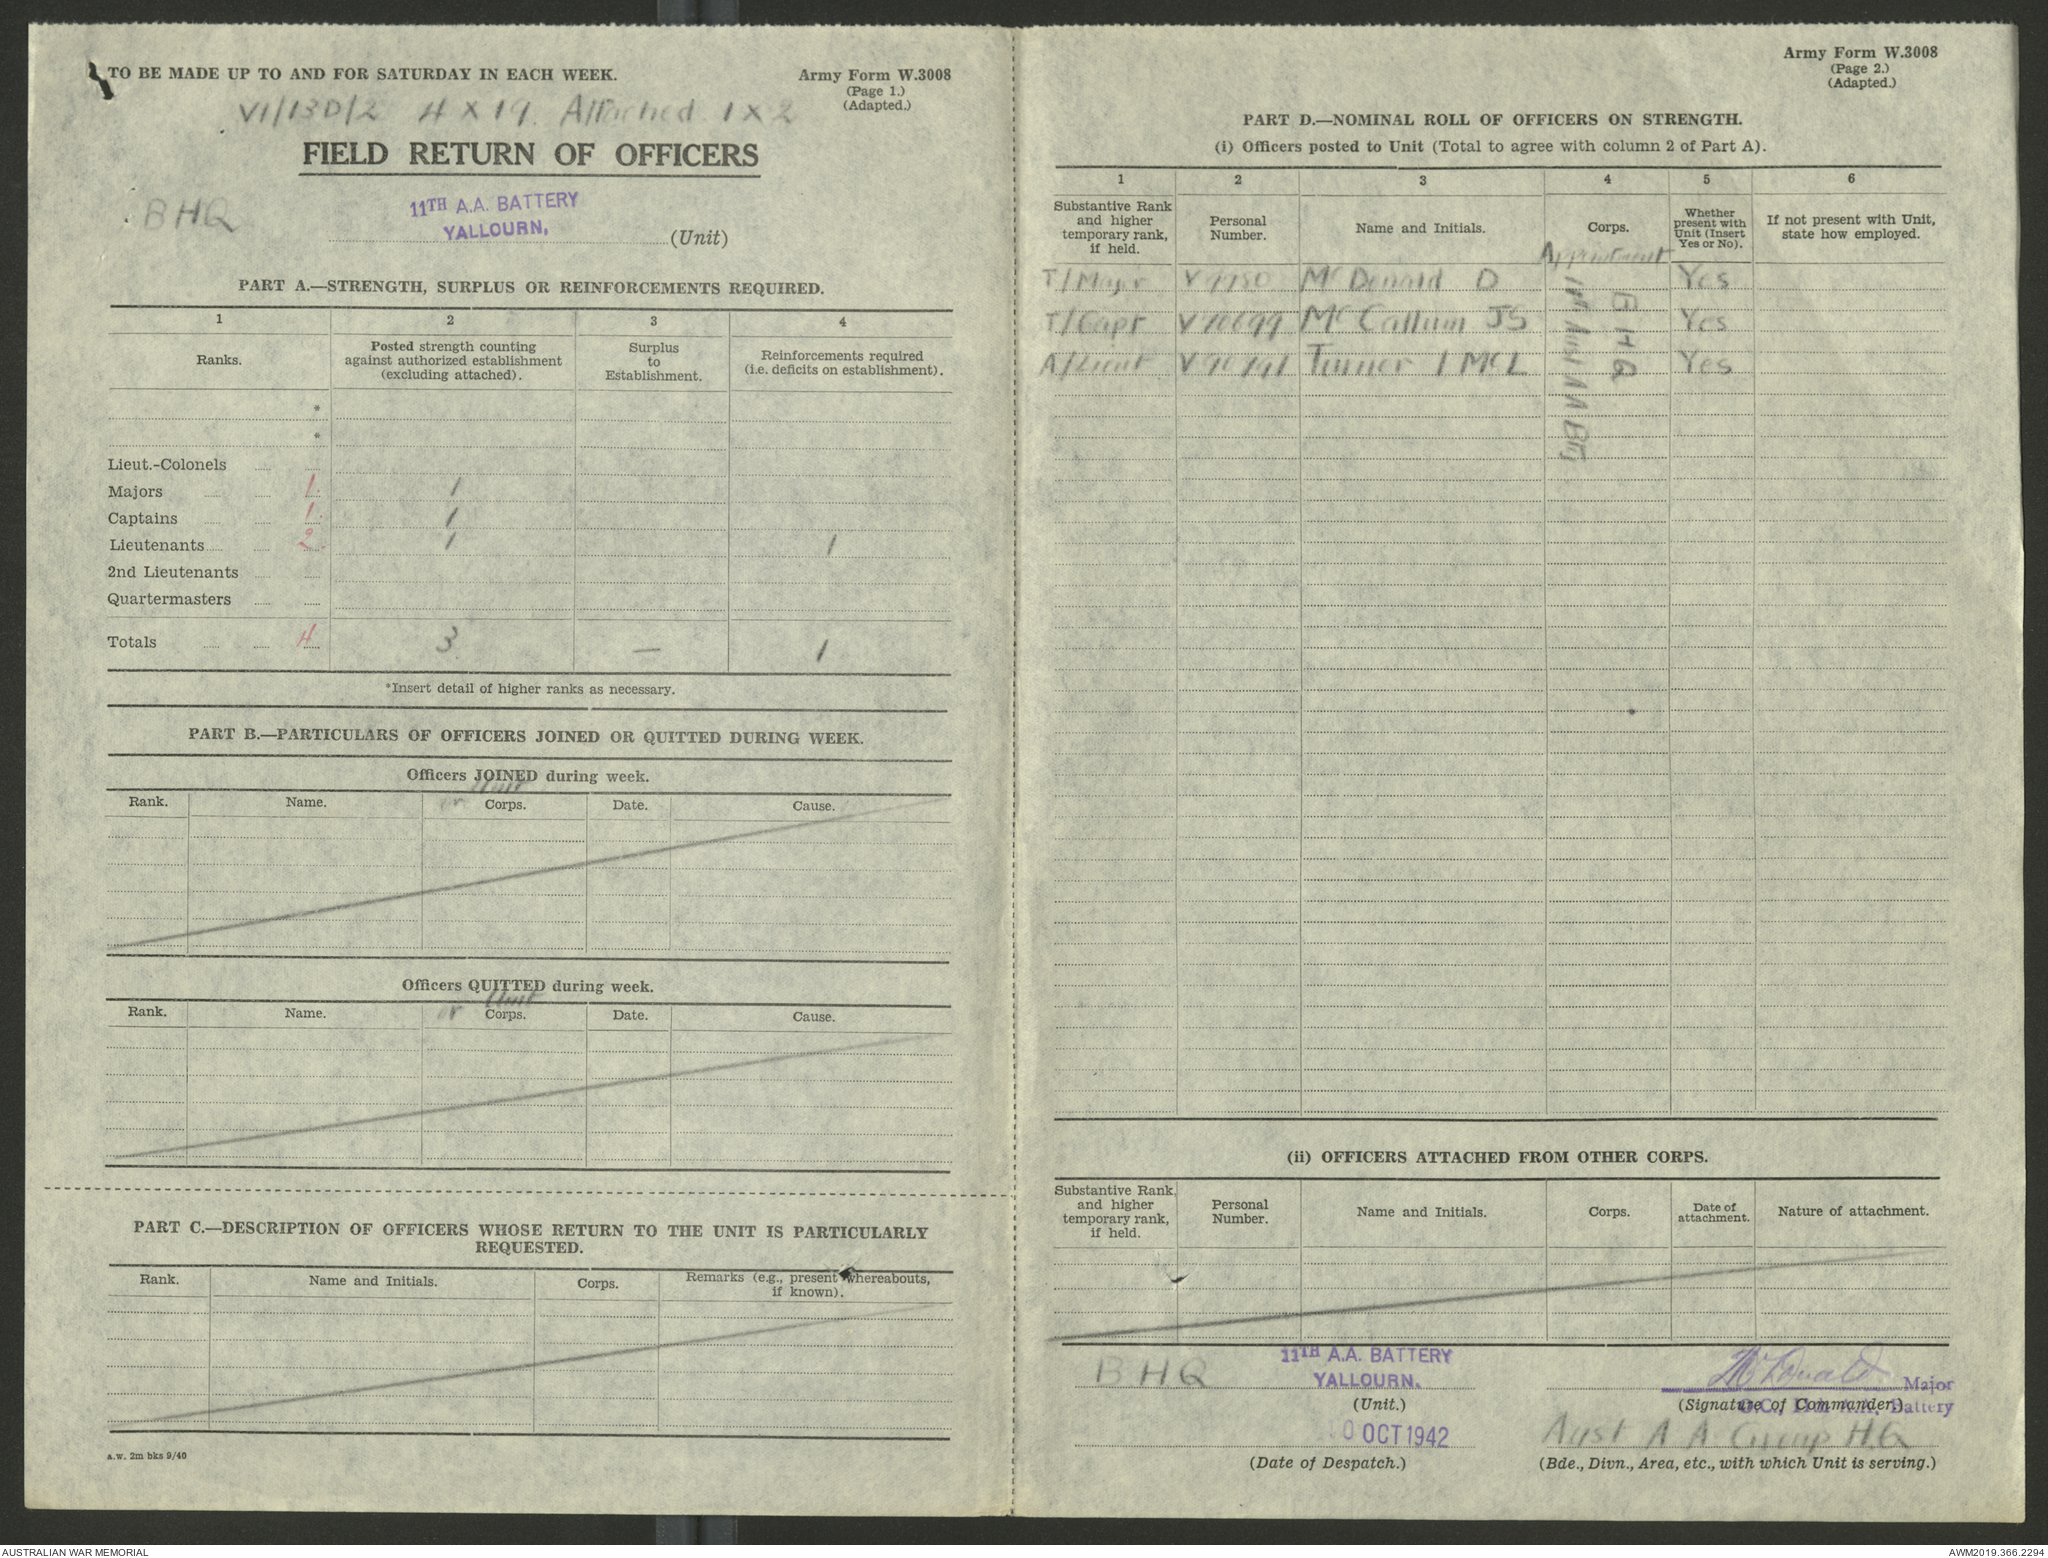 TO BE MADE UP TO AND FOR SATURDAY IN EACH WEEK.
Army Form W.3008
(Page 1.)
(Adapted.)
VI/13D/2 4 X 19. Attached 1 X 2
FIELD RETURN OF OFFICERS
BHQ
11TH A.A. BATTERY
YALLOURN,
(Unit)
PART A.—STRENGTH, SURPLUS OR REINFORCEMENTS REQUIRED.
1 2 3 4
Ranks. Posted strength counting against authorized establishment (excluding attached). Surplus to Establishment. Reinforcements required (i.e. deficits on establishment).
*
*
Lieut.-Colonels
Majors 1. 1
Captains 1. 1
Lieutenants 2. 1 1
2nd Lieutenants
Quartermasters
Totals 4 3 — 1
*Insert detail of higher ranks as necessary.
PART B.—PARTICULARS OF OFFICERS JOINED OR QUITTED DURING WEEK.
Officers JOINED during week.
or Unit
Rank. Name. Corps. Date. Cause.
Officers QUITTED during week.
or Unit
Rank. Name. Corps. Date. Cause.
PART C.—DESCRIPTION OF OFFICERS WHOSE RETURN TO THE UNIT IS PARTICULARLY
REQUESTED.
Rank. Name and Initials. Corps. Remarks (e.g., present whereabouts, if known).
A.W. 2m bks 9/40
Army Form W.3008
(Page 2.)
(Adapted.)
PART D.—NOMINAL ROLL OF OFFICERS ON STRENGTH.
(i) Officers posted to Unit (Total to agree with column 2 of Part A).
1 2 3 4 5 6
Substantive Rank and higher temporary rank, if held. Personal Number. Name and Initials. Corps. Whether present with Unit (Insert Yes or No). If not present with Unit, state how employed.
Appointment
T/Major McDonald D Yes
T/Capt McCallum JS Yes
A/Lieut Turner I McL Yes
BHQ
Aust AA Bty
(ii) OFFICERS ATTACHED FROM OTHER CORPS.
Substantive Rank, and higher temporary rank, if held. Personal Number. Name and Initials. Corps. Date of attachment. Nature of attachment.
BHQ
11TH A.A. BATTERY
YALLOURN.
(Unit.)
McDonald Major
O.C., 11th A.A. Battery
(Signature of Commander.)
0 OCT 1942
(Date of Despatch.)
Aust A A Group HQ
(Bde., Divn., Area, etc., with which Unit is serving.)
AUSTRALIAN WAR MEMORIAL
AWM2019.366.2294